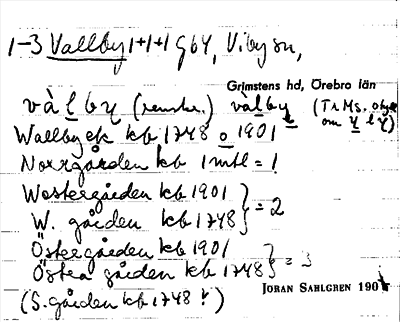 1-3 Vallby 1+1+1 gby, Viby sn,
Grimstens hd, Örebro län
vàlby (renskr.) vàlby (TrMs. obj
om y l y)
Wallby ek kb 1748 o 1901
Norrgården kb 1 mtl = 1
Westergården kb 1901
W. gården kb 1748 } = 2
Östergården kb 1901
Östra gården kb 1748 } = 3
(S. gården kb 1748 )
JÖRAN SAHLGREN 190